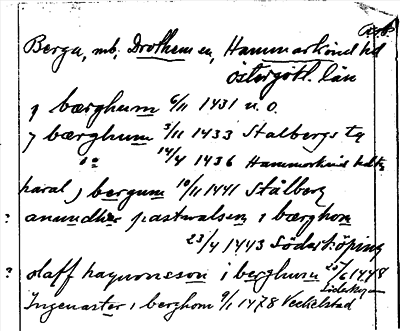 Berga, mb, Drothem sn, Hammarkind hd
Östergötl. län
j bærghum 6/11 1431 u.o.
j bærghum 3/11 1433 Stalbergs tg
i a 14/4 1436 Hammorkind hdtg
haral j bergum 10/11 1441 Stålberg
? anundher pastwalsen i bærghom
23/4 1443 Söderköping
? olaff haquonsson i berghum 25/6 1448
Söderkop
Ingenaster i berghom 9/1 1478 Veckelstad